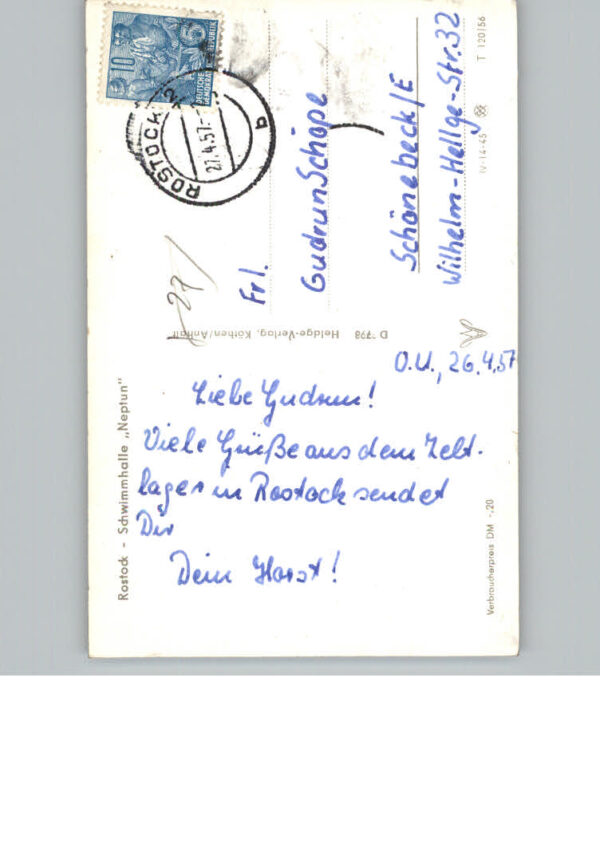 O.U., 26.4.57
Liebe Gudrun!
Viele Grüße aus dem Zelt-
lager in Rostock sendet
Dir
Dein Horst!
Frl.
Gudrun Schöpe
Schönebeck/E
Wilhelm-Hellge-Str. 32
Rostock - Schwimmhalle „Neptun"
Verbraucherpreis DM -,20
Heldge-Verlag, Köthen/Anhalt
IV-14-45
T 120/56
ROSTOCK
27.4.57
b
10
DEUTSCHE
27